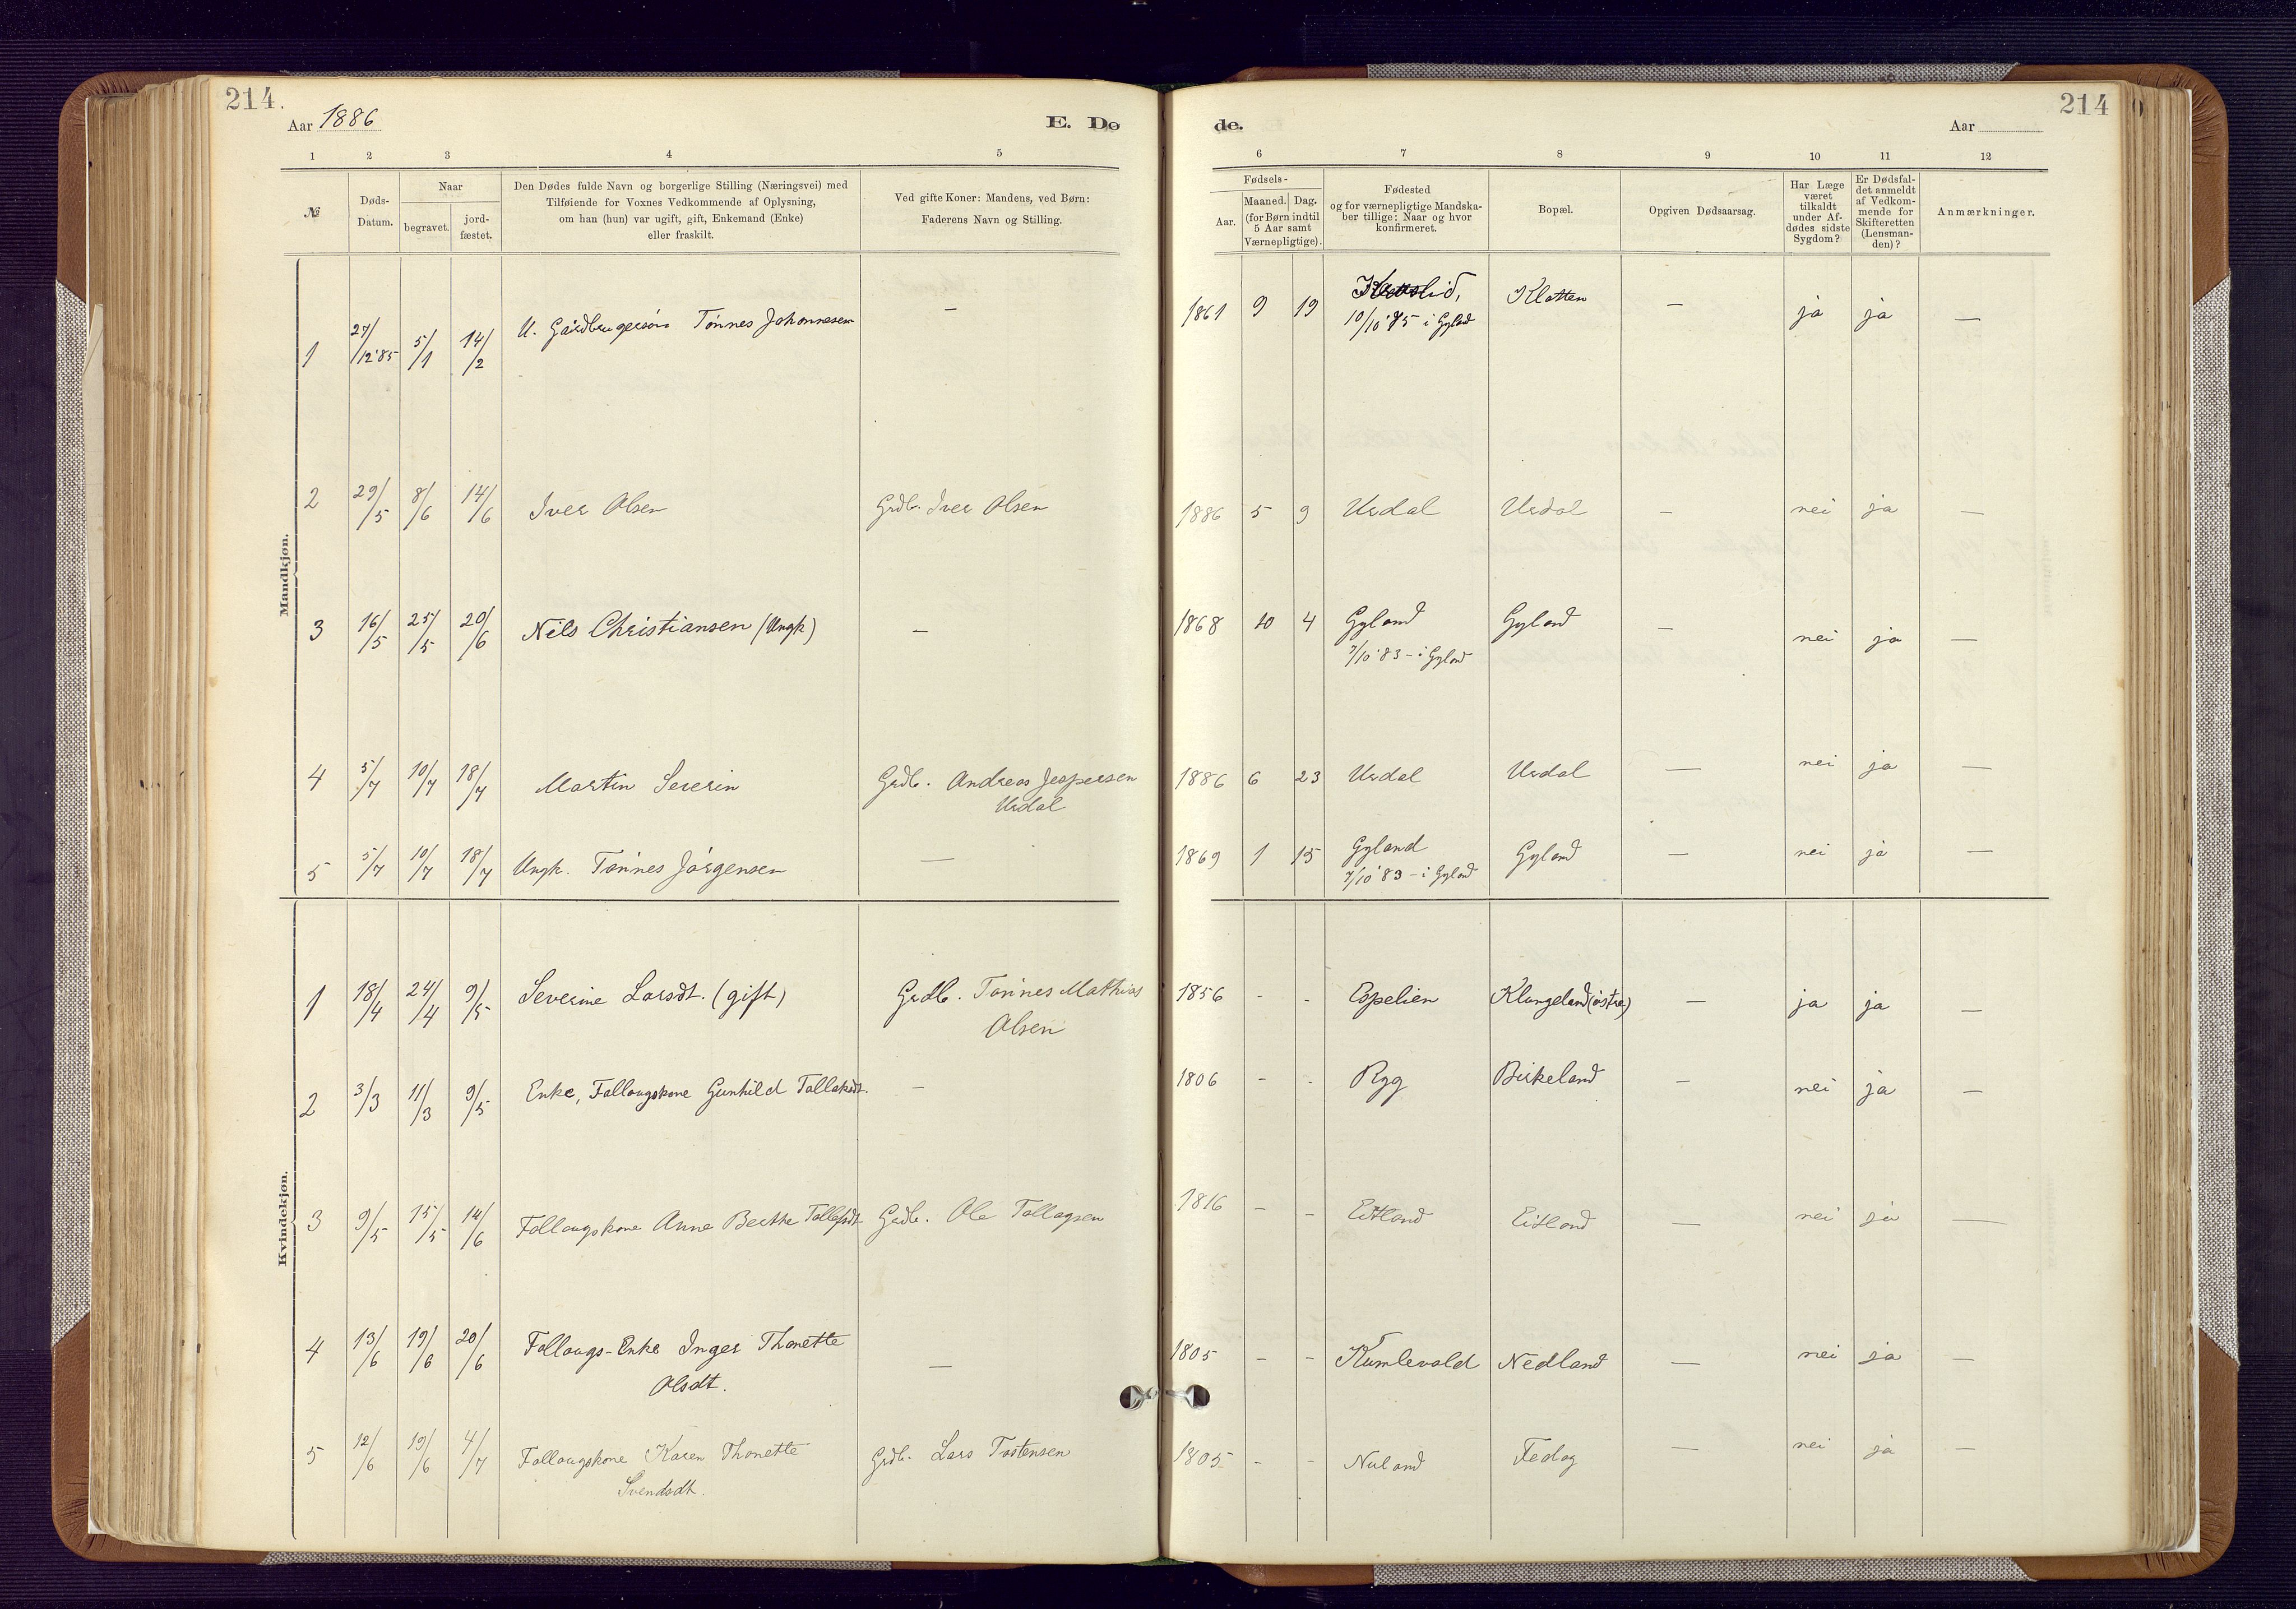 214.
214
Aar 1886
E. Dø
de.
Aar
1 2 3 4 5
6 7 8 9 10 11 12
№
Døds-
Datum.
Naar
begravet.
jord-
fæstet.
Den Dødes fulde Navn og borgerlige Stilling (Næringsvei) med
Tilføiende for Voxnes Vedkommende af Oplysning,
om han (hun) var ugift, gift, Enkemand (Enke)
eller fraskilt.
Ved gifte Koner: Mandens, ved Børn:
Faderens Navn og Stilling.
Fødsels-
Aar.
Maaned. Dag.
(for Børn indtil
5 Aar samt
Værnepligtige).
Fødested
og for værnepligtige Mandska-
ber tillige: Naar og hvor
konfirmeret.
Bopæl.
Opgiven Dødsaarsag.
Har Læge
været
tilkaldt
under Af-
dødes sidste
Sygdom?
Er Dødsfal-
det anmeldt
af Vedkom-
mende for
Skifteretten
(Lensman-
den)?
Anmærkninger.
Mandkjøn.
1 27/12'85 5/1 14/2 U. Gårdbrugersøn Tønnes Johannesen — 1861 9 19 Klatten — ja ja —
10/10 '75 i Gyland
2 29/5 8/6 14/6 Iver Olsen Grdb. Iver Olsen 1886 5 9 Urdal Urdal — nei ja —
3 16/5 25/5 20/6 Nils Christiansen (Ungk) — 1868 10 4 Gyland Gyland — nei ja —
7/10 '83 - i Gyland
4 5/7 10/7 18/7 Martin Severin Grdb. Andreas Jespersen 1886 6 23 Urdal Urdal — nei ja —
Urdal
5 5/7 10/7 18/7 Ungk. Tønnes Jørgensen — 1869 1 15 Gyland Gyland — nei ja —
7/10 '83 - i Gyland
Kvindekjøn.
1 18/4 24/4 9/5 Severine Larsdt. (gift) Grdb. Tønnes Mathias 1856 - - Espelien Klungeland (østre) — ja ja —
Olsen
2 3/3 11/3 9/5 Enke, Follaugskone Gunhild Tollaksdt. — 1806 - - Rgg Birkeland — nei ja —
3 9/5 15/5 14/6 Follaugskone Anne Berthe Tollefsdt Grdb. Ole Tollagsen 1816 - - Eitland Eitland — nei ja —
4 13/6 19/6 20/6 Follaugs-Enke Inger Thonette — 1805 - - Kumlevold Nedland — nei ja —
Olsdt.
5 12/6 19/6 4/7 Follaugskone Karen Thonette Grdb. Lars Tostensen 1805 - - Nuland Fedog — nei ja —
Svendsdt.